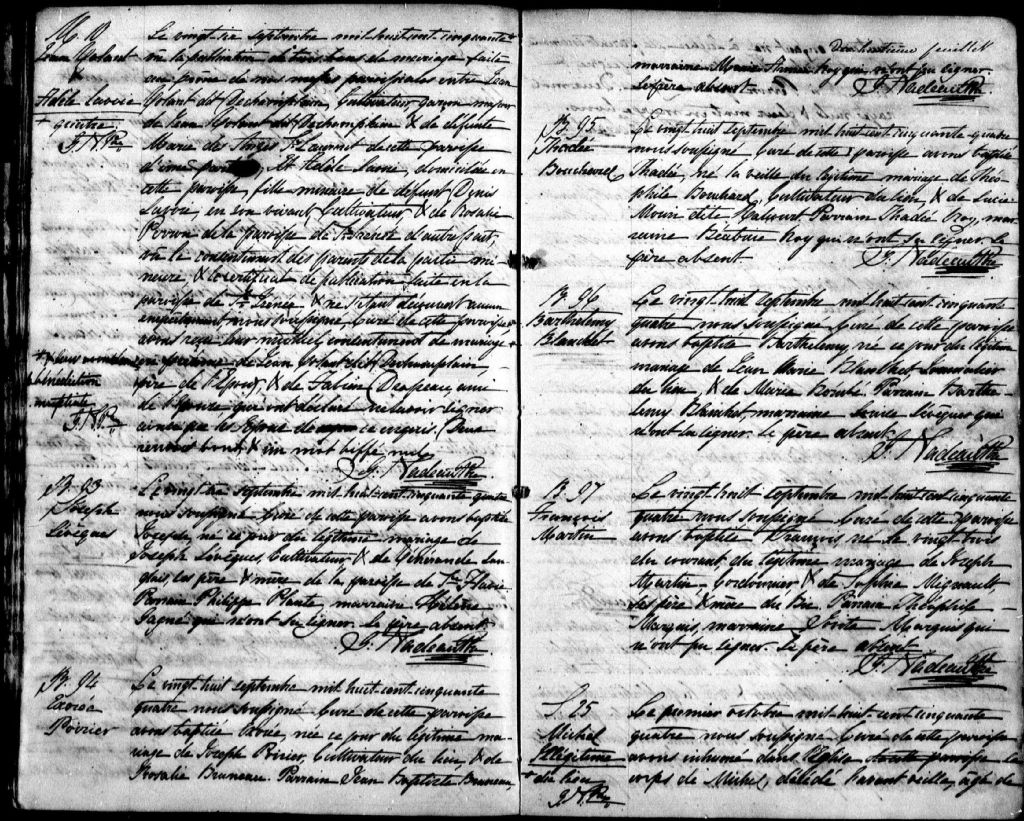 M. 19
Jean Volant
&
Adèle Savoie
+ quatre
J. N. Ptre
Le vingt-six septembre mil-huit-cent-cinquante +
vu la publication de trois bans de mariage faite
au prône de nos messes paroissiales entre Jean
Volant dit Dechamplain, Cultivateur garçon majeur
de Jean Volant dit Dechamplain & de défunte
Marie des Anges St Laurent de cette paroisse
d'une part, Et Adèle Savoie, domiciliée en
cette paroisse, fille mineure de défunt Denis
Savoie, en son vivant Cultivateur, & de Rosalie
de la paroisse de d'autre part,
vu le consentement des parents de la partie mi-
neure, & le certificat de publication faite en la
paroisse de & ne s'étant découvert aucun
empêchement nous soussigné, Curé de cette paroisse
avons reçu leur mutuel consentement de mariage +
en présence de Jean Volant dit Dechamplain,
père de l'Epoux, & de Fabien Drapeau, ami
de l'Epouse qui ont déclaré ne savoir signer
ainsi que les Epoux de ce enquis. Deux
renvois bons, & un mot biffé nul
J. Nadeau Ptre
+ & leur
la bénédiction
nuptiale
J. N. Ptre
B. 93
Joseph
Lévêques
Le vingt-six septembre mil-huit-cent-cinquante quatre
nous soussigné Curé de cette paroisse avons baptisé
Joseph, né ce jour du légitime mariage de
Joseph Lévêques, Cultivateur, & de Générande Lan-
glais, ses père & mère de la paroisse de Ste Flavie
Parrain Philippe Plante, marraine Hélène
Gagné qui n'ont su signer. Le père absent
J. Nadeau Ptre
B. 94
Poirier
Le vingt-huit septembre mil-huit-cent-cinquante
quatre nous soussigné Curé de cette paroisse
avons baptisé née ce jour du légitime ma-
riage de Joseph Poirier, Cultivateur du lieu, & de
Rosalie Bruneau. Parrain Jean Baptiste Bruneau,
Dix huitième feuillet
marraine Marie Roy qui n'ont pu signer.
Le père absent J. Nadeau Ptre
B. 95
Thadée
Bouchard
Le vingt huit septembre mil huit cent cinquante quatre
nous soussigné Curé de cette paroisse avons baptisé
Thadée, né la veille du légitime mariage de Théo-
phile Bouchard, Cultivateur du lieu, & de Lucie
Morin dite Valcourt Parrain Thadée Roy, mar-
raine Roy qui n'ont su signer. Le
père absent J. Nadeau Ptre
B. 96
Barthelemy
Blanchet
Le vingt huit septembre mil huit cent cinquante
quatre nous soussigné Curé de cette paroisse
avons baptisé Barthelemy, né ce jour du légitime
mariage de Jean Marie Blanchet
du lieu, & de Marie Parrain Barthe-
lemy Blanchet, marraine Lévêques qui
n'ont su signer. Le père absent
J. Nadeau Ptre
B. 97
François
Martin
Le vingt huit septembre mil huit cent cinquante
quatre nous soussigné Curé de cette paroisse
avons baptisé François né le vingt trois
du courant du légitime mariage de Joseph
Martin, Cordonnier, & de Sophie Mignault,
ses père & mère du Bic Parrain Théophile
Marquis, marraine Marquis qui
n'ont pu signer. Le père absent
J. Nadeau Ptre
S. 25
Michel
Illégitime
+ du lieu
J. N. Ptre
Le premier octobre mil-huit-cent-cinquante
quatre nous soussigné Curé de cette paroisse
avons inhumé dans l'Eglise paroisse le
corps de Michel, décédé l'avant veille, âgé de